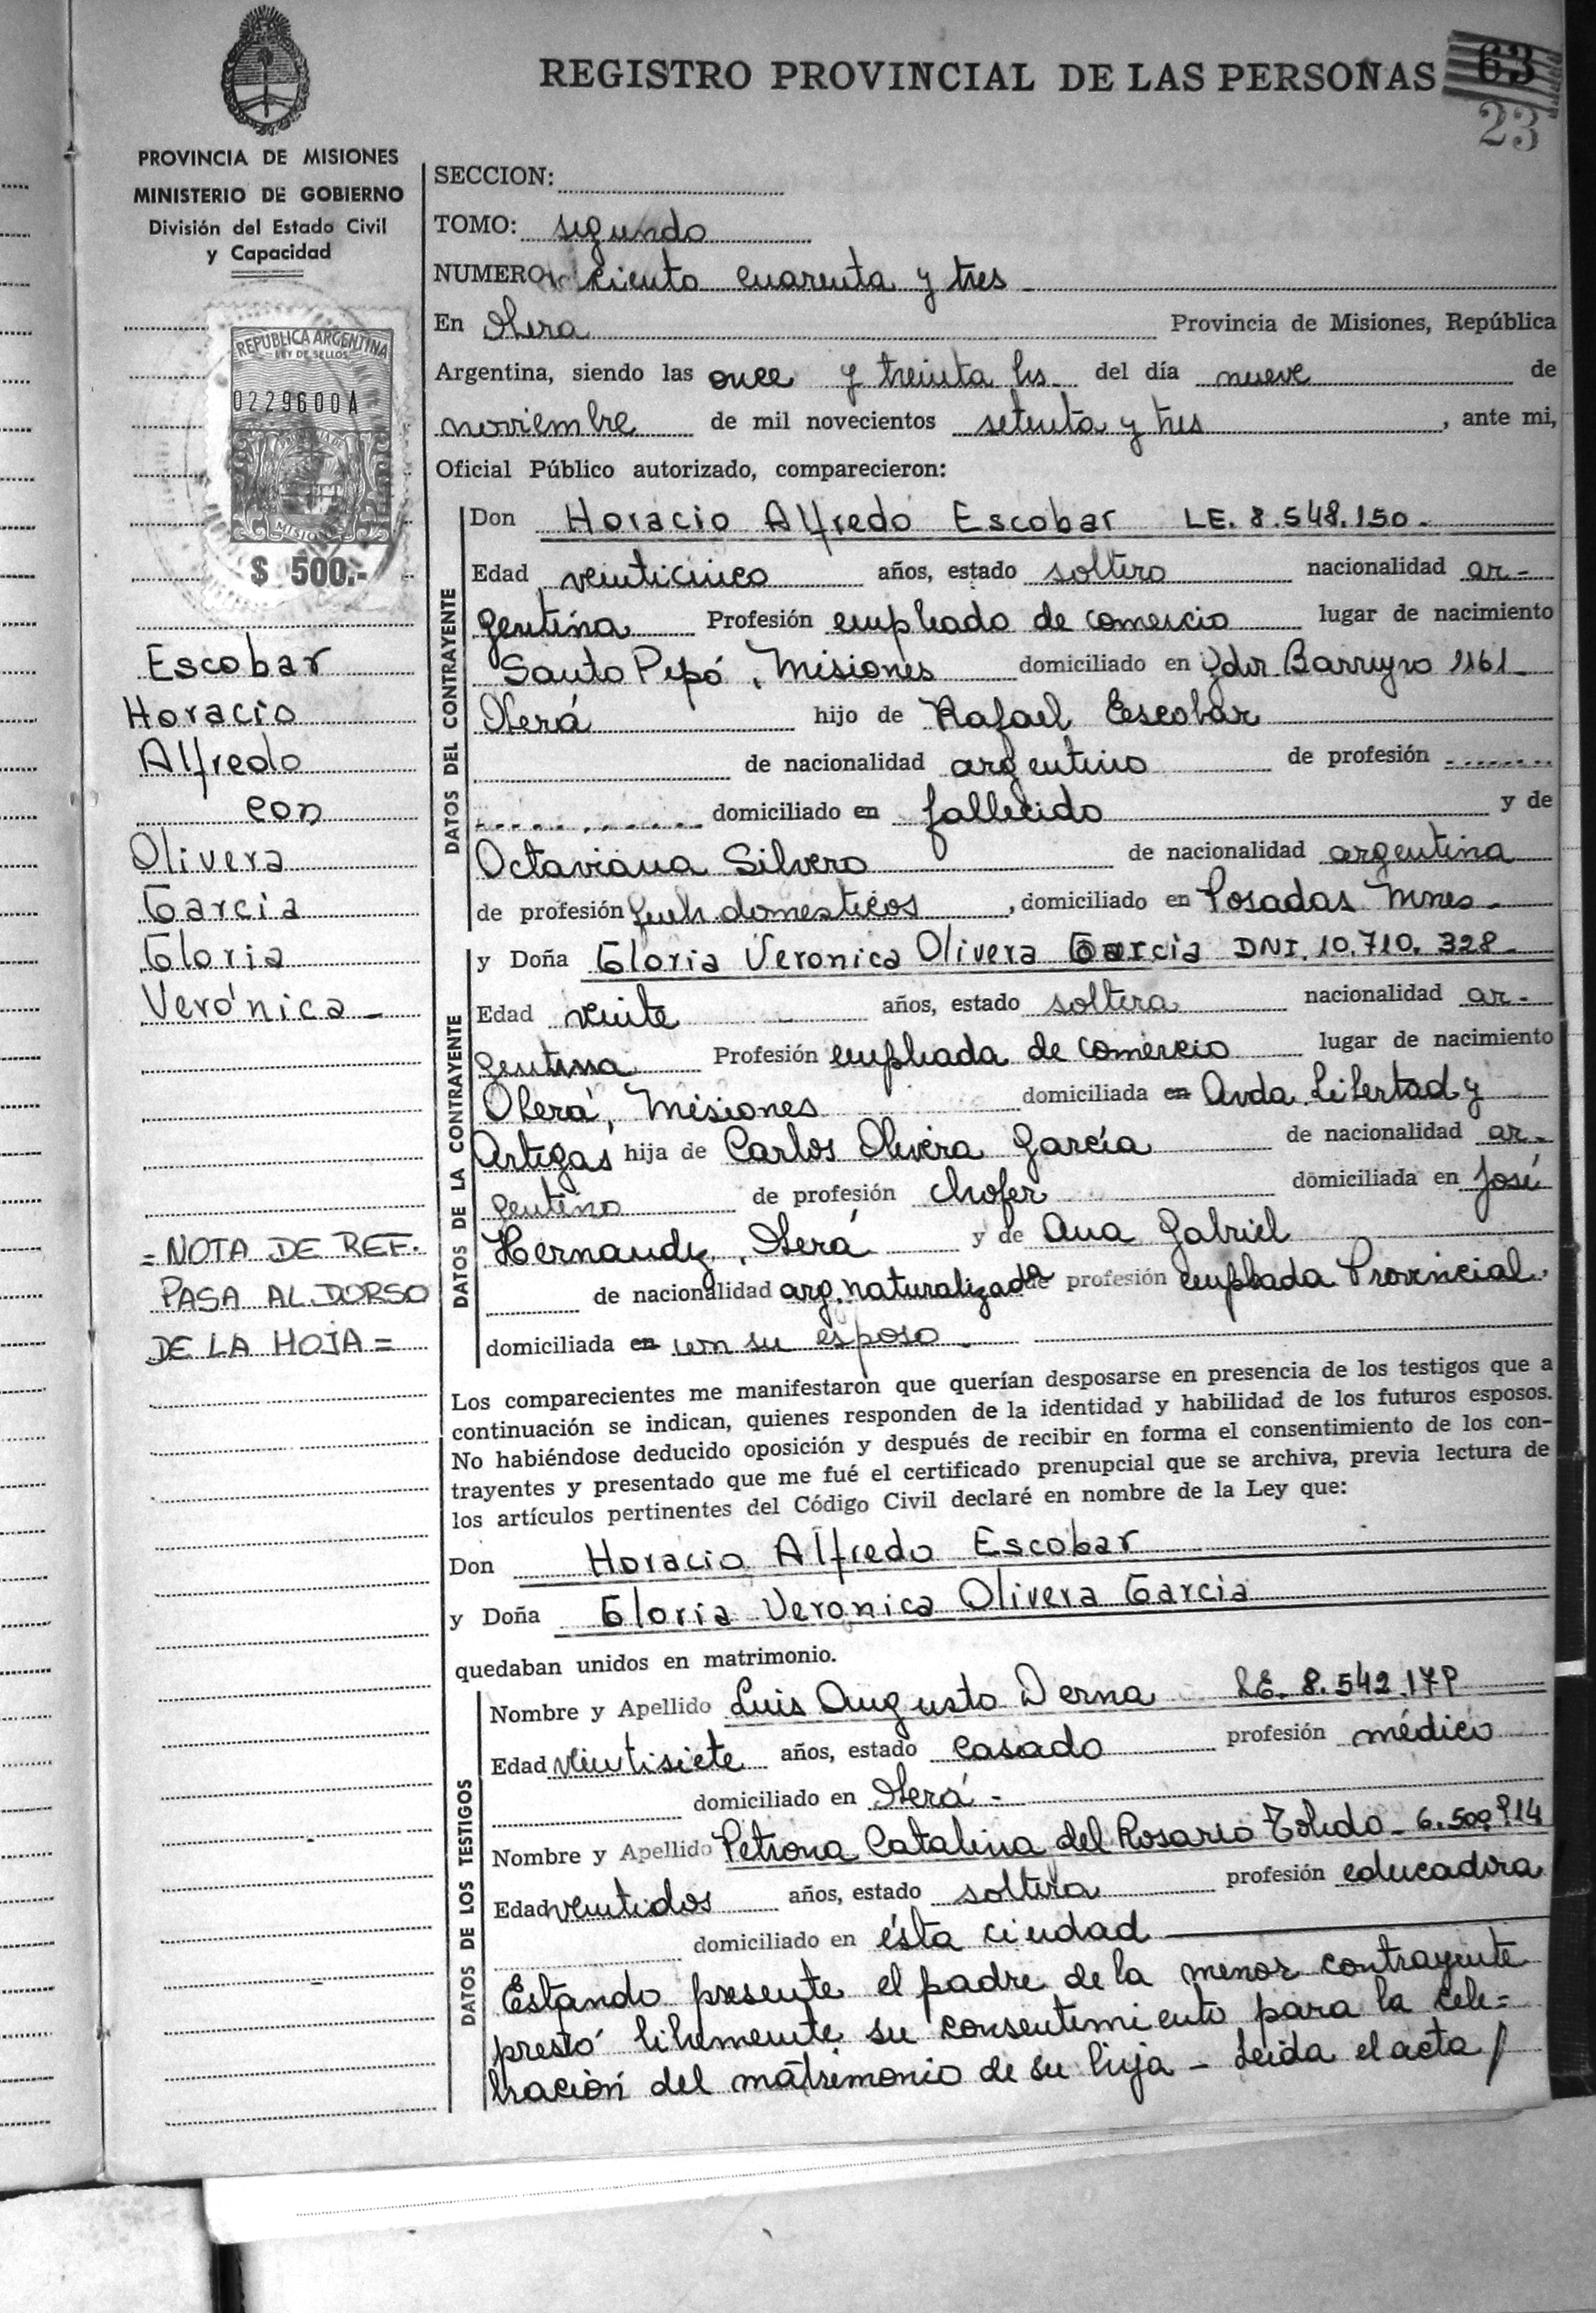 REGISTRO PROVINCIAL DE LAS PERSONAS
63
23
PROVINCIA DE MISIONES
MINISTERIO DE GOBIERNO
División del Estado Civil
y Capacidad
REPUBLICA ARGENTINA
LEY DE SELLOS
0229600A
MISIONES
$ 500.-
Escobar
Horacio
Alfredo
con
Olivera
Garcia
Gloria
Verónica -
= NOTA DE REF.
PASA AL DORSO
DE LA HOJA =
SECCION:
TOMO: segundo
NUMERO: ciento cuarenta y tres
En Obera Provincia de Misiones, República
Argentina, siendo las once y treinta hs. del día nueve de
noviembre de mil novecientos setenta y tres, ante mi,
Oficial Público autorizado, comparecieron:
DATOS DEL CONTRAYENTE
Don Horacio Alfredo Escobar LE. 8.548.150.
Edad veinticinco años, estado soltero nacionalidad ar-
gentina Profesión empleado de comercio lugar de nacimiento
Santo Pipó, Misiones domiciliado en Barreyro 1161
Oberá hijo de Rafael Escobar
de nacionalidad argentino de profesión
domiciliado en fallecido y de
Octaviana Silvero de nacionalidad argentina
de profesión domésticos, domiciliado en Posadas Mnes.
DATOS DE LA CONTRAYENTE
y Doña Gloria Veronica Olivera Garcia DNI. 10.710.328
Edad veinte años, estado soltera nacionalidad ar-
gentina Profesión empleada de comercio lugar de nacimiento
Oberá, Misiones domiciliada en Avda. Libertad y
Artigas hija de Carlos Olivera García de nacionalidad ar-
gentino de profesión chofer domiciliada en José
Hernandez, Oberá y de Ana Gabriel
de nacionalidad arg. naturalizada de profesión empleada Provincial
domiciliada en con su esposo
Los comparecientes me manifestaron que querían desposarse en presencia de los testigos que a
continuación se indican, quienes responden de la identidad y habilidad de los futuros esposos.
No habiéndose deducido oposición y después de recibir en forma el consentimiento de los con-
trayentes y presentado que me fué el certificado prenupcial que se archiva, previa lectura de
los artículos pertinentes del Código Civil declaré en nombre de la Ley que:
Don Horacio Alfredo Escobar
y Doña Gloria Veronica Olivera Garcia
quedaban unidos en matrimonio.
DATOS DE LOS TESTIGOS
Nombre y Apellido Luis Augusto Derna LE. 8.542.179
Edad veintisiete años, estado casado profesión médico
domiciliado en Oberá -
Nombre y Apellido Petrona Catalina del Rosario Toledo - 6.509.914
Edad veintidos años, estado soltera profesión educadora
domiciliado en ésta ciudad
Estando presente el padre de la menor contrayente
prestó libremente su consentimiento para la cele=
bración del matrimonio de su hija - Leida el acta /